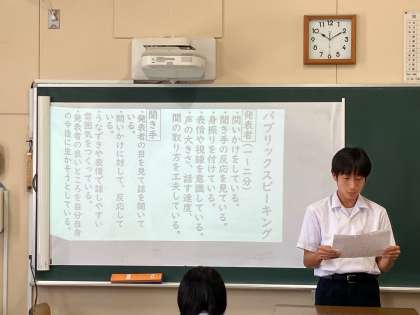 パブリックスピーキング
発表者(一~二分)
・問いかけをしている。
・聞き手の反応を見ている。
・身振りを付けている。
・表情や視線を意識している。
・声の大きさ、話す速度、
間の取り方を工夫している。
聞き手
・発表者の目を見て話を聞いて
いる。
・問いかけに対して、反応して
いる。
・うなずきや表情で話しやすい
雰囲気をつくっている。
・発表者の良いところを自分自身
の今後に生かそうとしている。